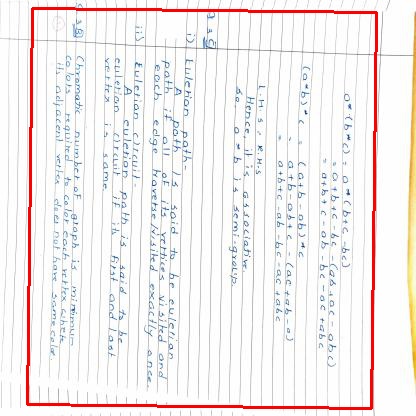 a*(b*c) = a*(b+c-bc)
= a+b+c-bc-(ab+ac-abc)
= a+b+c-ab-bc-ac+abc
(a*b)*c = (a+b-ab)*c
= a+b-ab+c-(ac+
= a+b+c-ab-bc-ac+abc
L.H.S = R.H.S
Hence, it is associative.
So, a*b is semi-group.
i) Eulerian path-
A path is said to be eulerian
path if all of its vertices visited and
each edge traverse/visited exactly once.
ii) Eulerian circuit-
A eulerian path is said to be
eulerian circuit if its first and last
vertex is same.
Chromatic number of graph is minimum
colors required to color each vertex where
its adjacent vertex does not have same color.